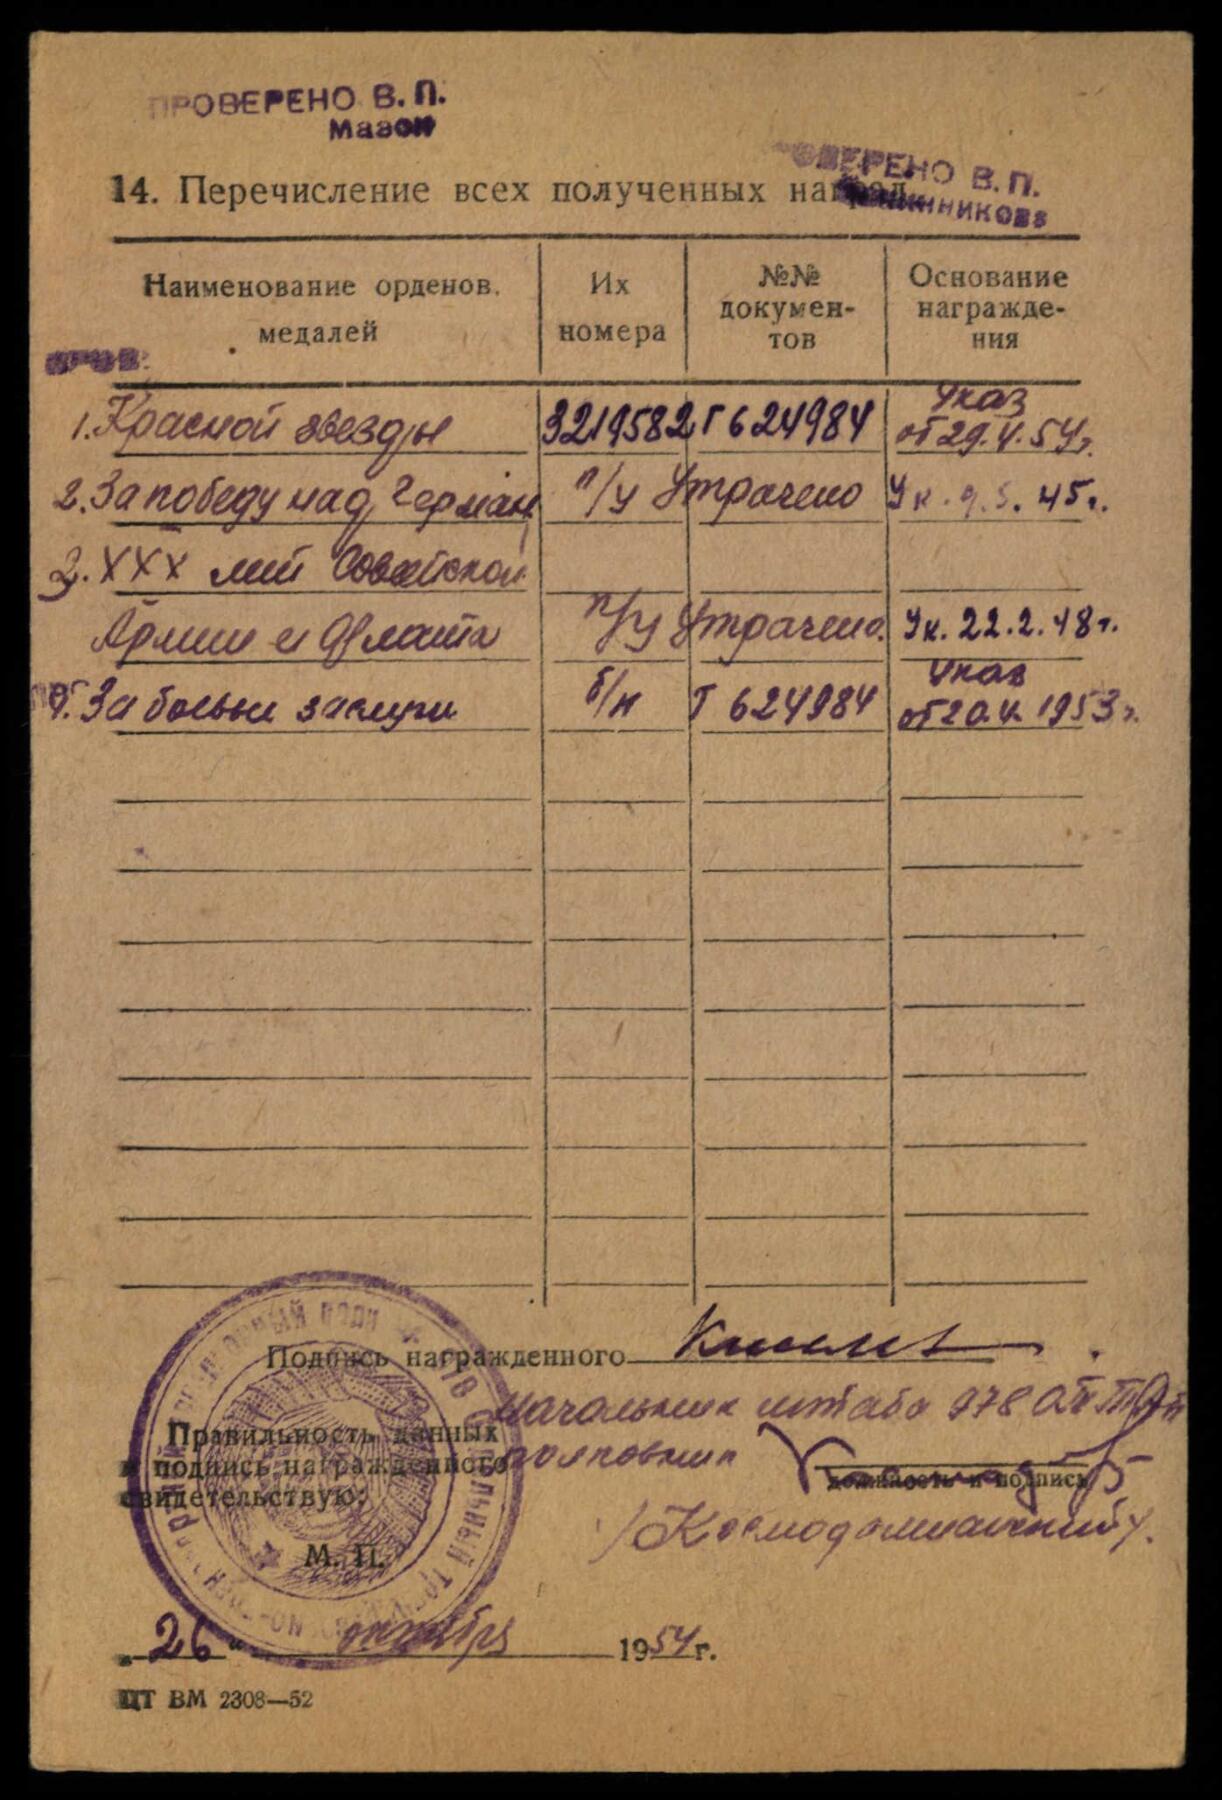 ПРОВЕРЕНО В. П.
Мазон
ПРОВЕРЕНО В. П.
14. Перечисление всех полученных наград
Наименование орденов, медалей
Их номера
№№ документов
Основание награждения
1. Красной звезды 3219582 Г 624984 Указ от 29.4.54г.
2. За победу над Герман. п/у Утрачено Ук. 9.5.45г.
3. XXX лет Советской
Армии и Флота п/у Утрачено. Ук. 22.2.48г.
4. За боевые заслуги б/н Г 624984 Указ от 20.4.1953г.
Подпись награжденного
Начальник штаба 978
Правильность данных
и подпись награжденного
свидетельствую:
полковник
должность и подпись
М. П.
„26" октября 1954 г.
ЦТ ВМ 2308—52